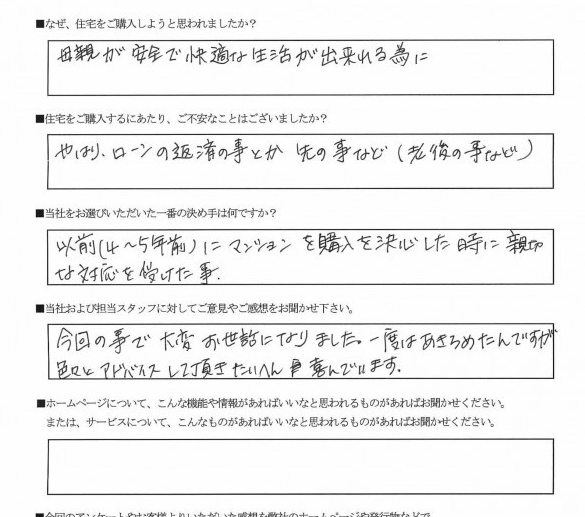 ■なぜ、住宅をご購入しようと思われましたか？
母親が安全で快適な生活が出来れる為に
■住宅をご購入するにあたり、ご不安なことはございましたか？
やはり、ローンの返済の事とか 先の事など（老後の事など）
■当社をお選びいただいた一番の決め手は何ですか？
以前(4～5年前)に マンション を購入を決心した時に 親切
な対応を受けた事.
■当社および担当スタッフに対してご意見やご感想をお聞かせ下さい。
今回の事で 大変 お世話になりました。一度はあきらめたんですが
色々と アドバイス して頂き たいへん 喜んでいます.
■ホームページについて、こんな機能や情報があればいいなと思われるものがあればお聞かせください。
または、サービスについて、こんなものがあればいいなと思われるものがあればお聞かせください。
■今回のアンケートやお客様よりいただいた感想を弊社のホームページや発行物などで